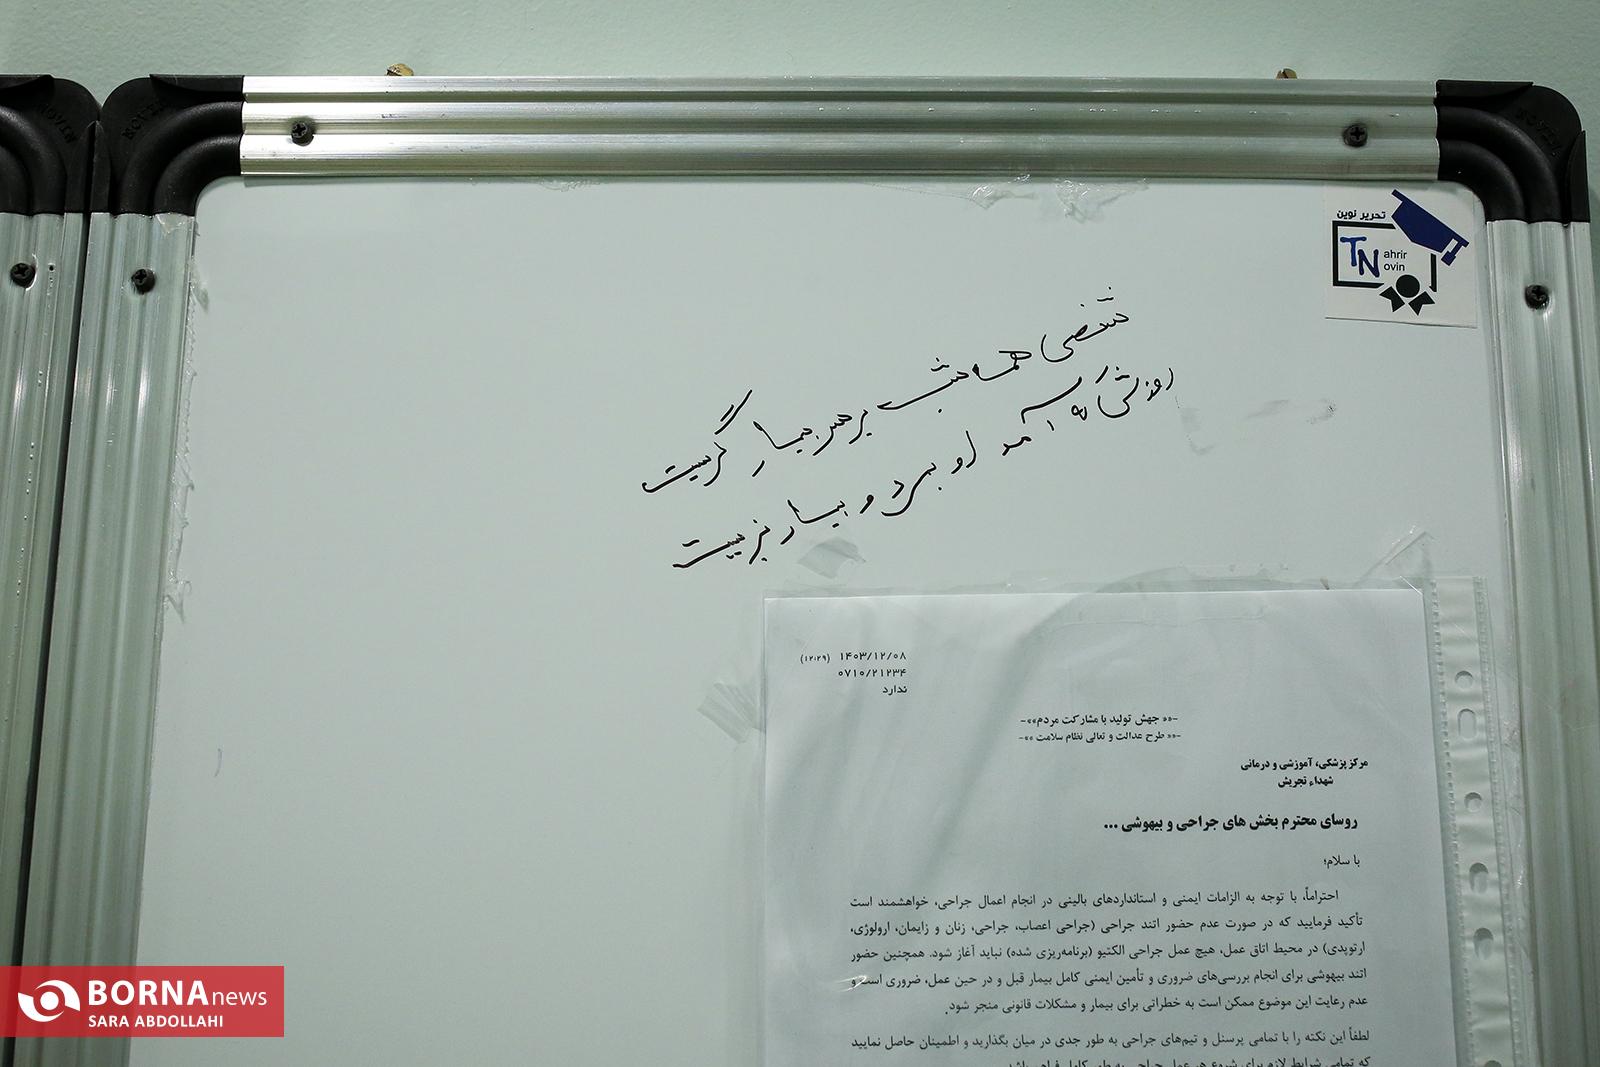 تحریر نوین
TN ahrir ovin
شخصی همه شب بر سر بیمار گریست
روزش که آمد او بمرد و بیمار بزیست
۱۴۰۳/۱۲/۰۸ (۱۲:۲۹)
۰۷۱۰/۲۱۲۳۴
ندارد
-«« جهش تولید با مشارکت مردم»»-
-«« طرح عدالت و تعالی نظام سلامت »»-
مرکز پزشکی، آموزشی و درمانی
شهداء تجریش
روسای محترم بخش های جراحی و بیهوشی ...
با سلام؛
احتراماً، با توجه به الزامات ایمنی و استانداردهای بالینی در انجام اعمال جراحی، خواهشمند است
تأکید فرمایید که در صورت عدم حضور اتند جراحی (جراحی اعصاب، جراحی، زنان و زایمان، ارولوژی،
ارتوپدی) در محیط اتاق عمل، هیچ عمل جراحی الکتیو (برنامه‌ریزی شده) نباید آغاز شود. همچنین حضور
اتند بیهوشی برای انجام بررسی‌های ضروری و تأمین ایمنی کامل بیمار قبل و در حین عمل، ضروری است و
عدم رعایت این موضوع ممکن است به خطراتی برای بیمار و مشکلات قانونی منجر شود.
لطفاً این نکته را با تمامی پرسنل و تیم‌های جراحی به طور جدی در میان بگذارید و اطمینان حاصل نمایید
که تمامی شرایط لازم برای شروع هر عمل جراحی به طور کامل فراهم باشد.
BORNA news
SARA ABDOLLAHI